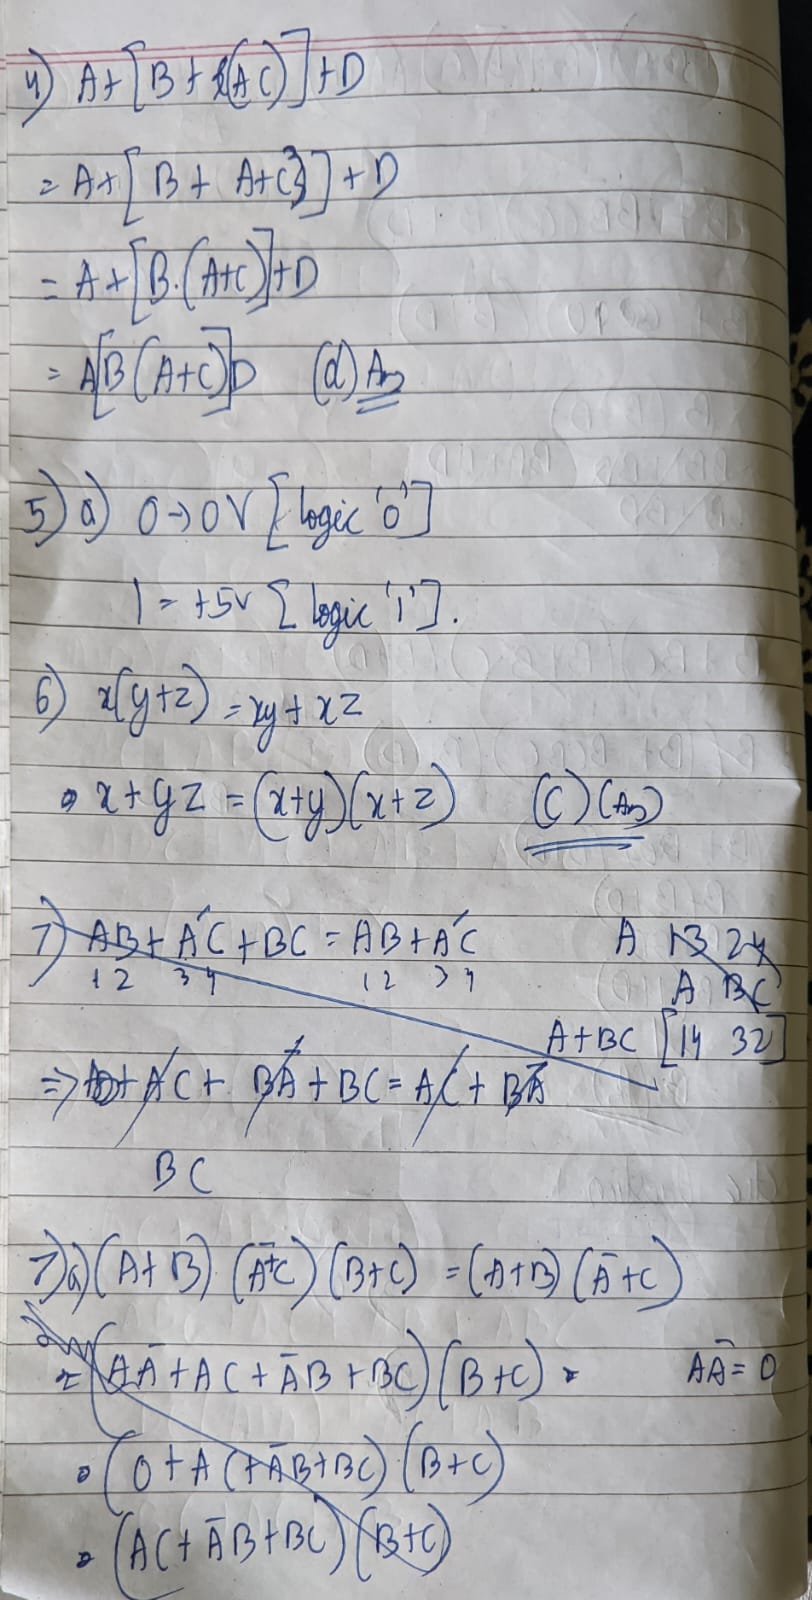 4) A+[B+(AC)]+D
= A+[B+ A+C}]+D
= A+[B.(A+C)]+D
= A[B(A+C)]D (d) Ans
5) a) 0→0V [logic '0']
1 = +5V [logic '1'].
6) x(y+z) = xy + xz
x+yz = (x+y)(x+z) (C) (Ans)
7) AB + A'C + BC = AB + A'C
1 2 3 4 1 2 3 4
A 13 24
A BC
A+BC [14 32]
=> AC + BĀ + BC = AC + BĀ
BC
7) a) (A+B) (Ā+C) (B+C) = (A+B) (Ā+C)
= (AĀ + AC + ĀB + BC) (B+C) AĀ = 0
= (0 + AC + ĀB + BC) (B+C)
= (AC + ĀB + BC) (B+C)